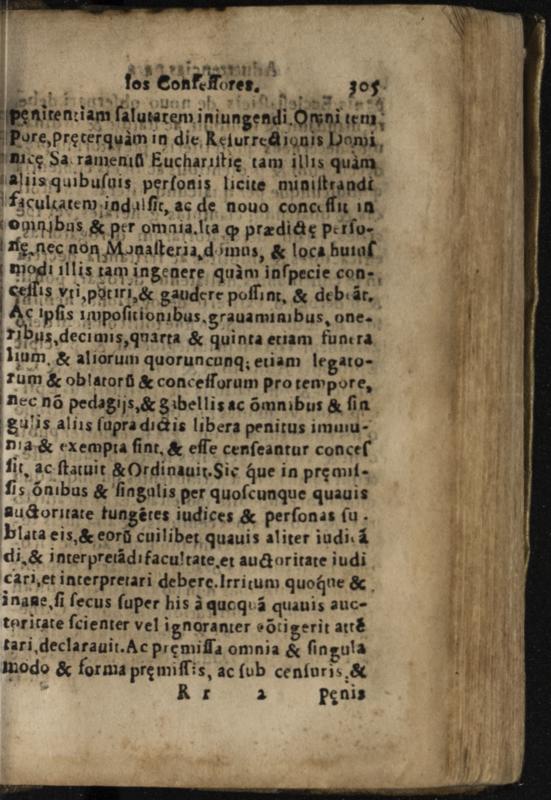 los Confessores. 305
pęnitentiam salutarem iniungendi. Omni tem
pore, pręterquàm in die Resurrectionis Domi
nicę Sacramentũ Eucharistię tam illis quàm
aliis quibusuis personis licite ministrandi
facultatem indulsit, ac de nouo concessit in
omnibus & per omnia. Ita ꝙ prædictę perso-
nę, nec non Monasteria, domus, & loca huius
modi illis tam in genere quàm in specie con-
cessis vti, põtiri, & gaudere possint, & debeãt.
Ac ipsis impositionibus, grauaminibus, one-
ribus, decimis, quarta & quinta etiam funera
lium, & aliorum quoruncunq; etiam legato-
rum & oblatorũ & concessorum pro tempore,
nec nõ pedagijs, & gabellis ac õmnibus & sin
gulis aliis supradictis libera penitus immu-
nia & exempta sint, & esse censeantur conces
sit, ac statuit & Ordinauit. Sic q́ue in pręmis-
sis õnibus & singulis per quoscunque quauis
auctoritate fungẽtes iudices & personas su-
blata eis, & eorũ cuilibet quauis aliter iudicã
di, & interpretãdi facultate, et auctoritate iudi
cari, et interpretari debere. Irritum quoq́ue &
inane, si secus super his à quoquã quauis auc-
toritate scienter vel ignoranter cõtigerit attẽ
tari, declarauit. Ac pręmissa omnia & singula
modo & forma pręmissis, ac sub censuris, &
R r 2 pęnis